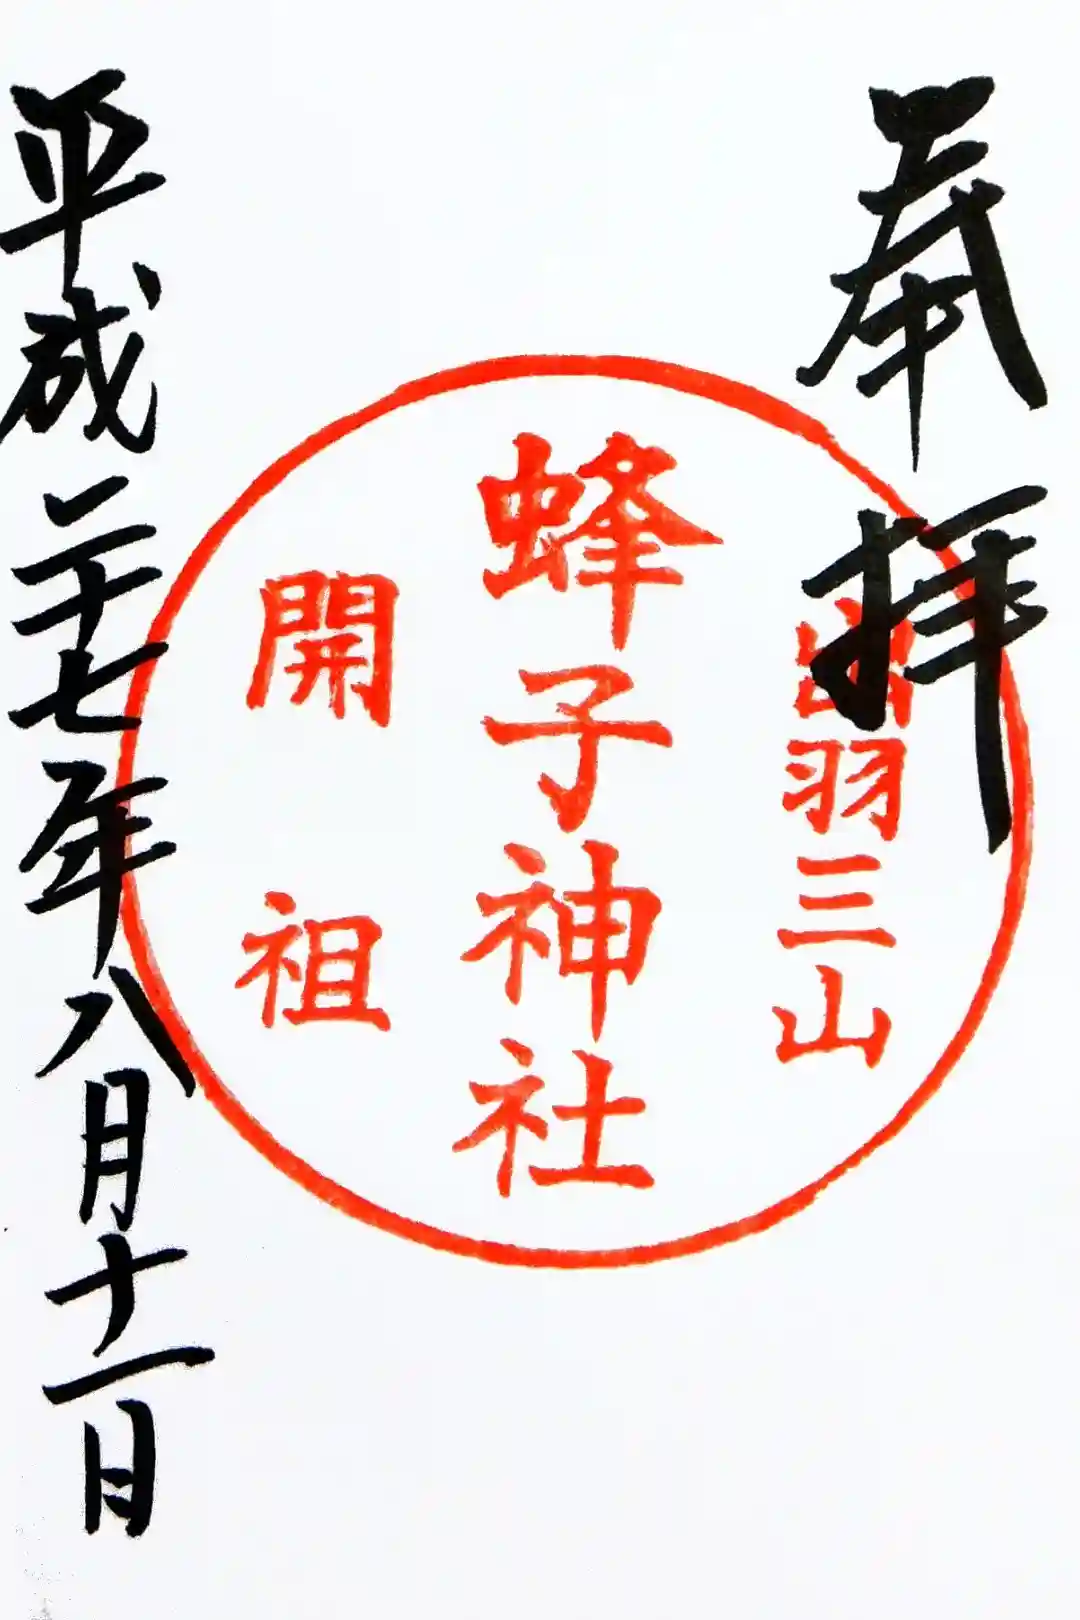 奉拝
出羽三山
蜂子神社
開祖
平成二十七年八月十一日